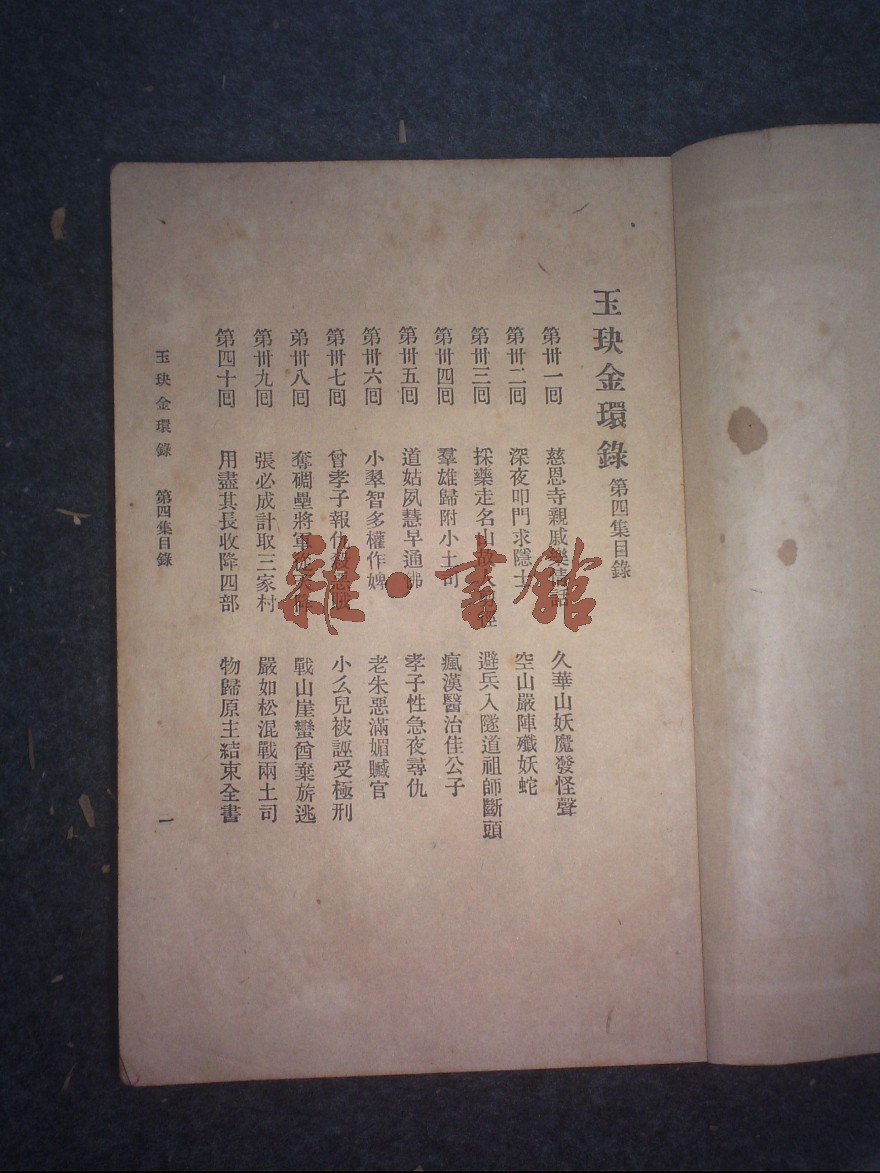 玉玦金環錄 第四集目錄
第卅一回 慈恩寺親戚樂情話 久華山妖魔發怪聲
第卅二回 深夜叩門求隱士 空山嚴陣殲妖蛇
第卅三回 採藥走名山故人 避兵入隧道祖師斷頭
第卅四回 羣雄歸附小土司 瘋漢醫治佳公子
第卅五回 道姑夙慧早通佛 孝子性急夜尋仇
第卅六回 小翠智多權作婢 老朱惡滿媚贓官
第卅七回 曾孝子報仇殺惡賊 小么兒被誣受極刑
弟卅八回 奪碉壘將軍從天降 戰山崖蠻酋棄旂逃
第卅九回 張必成計取三家村 嚴如松混戰兩土司
第四十回 用盡其長收降四部 物歸原主結束全書
玉玦金環錄 第四集目錄 一
雜·書館